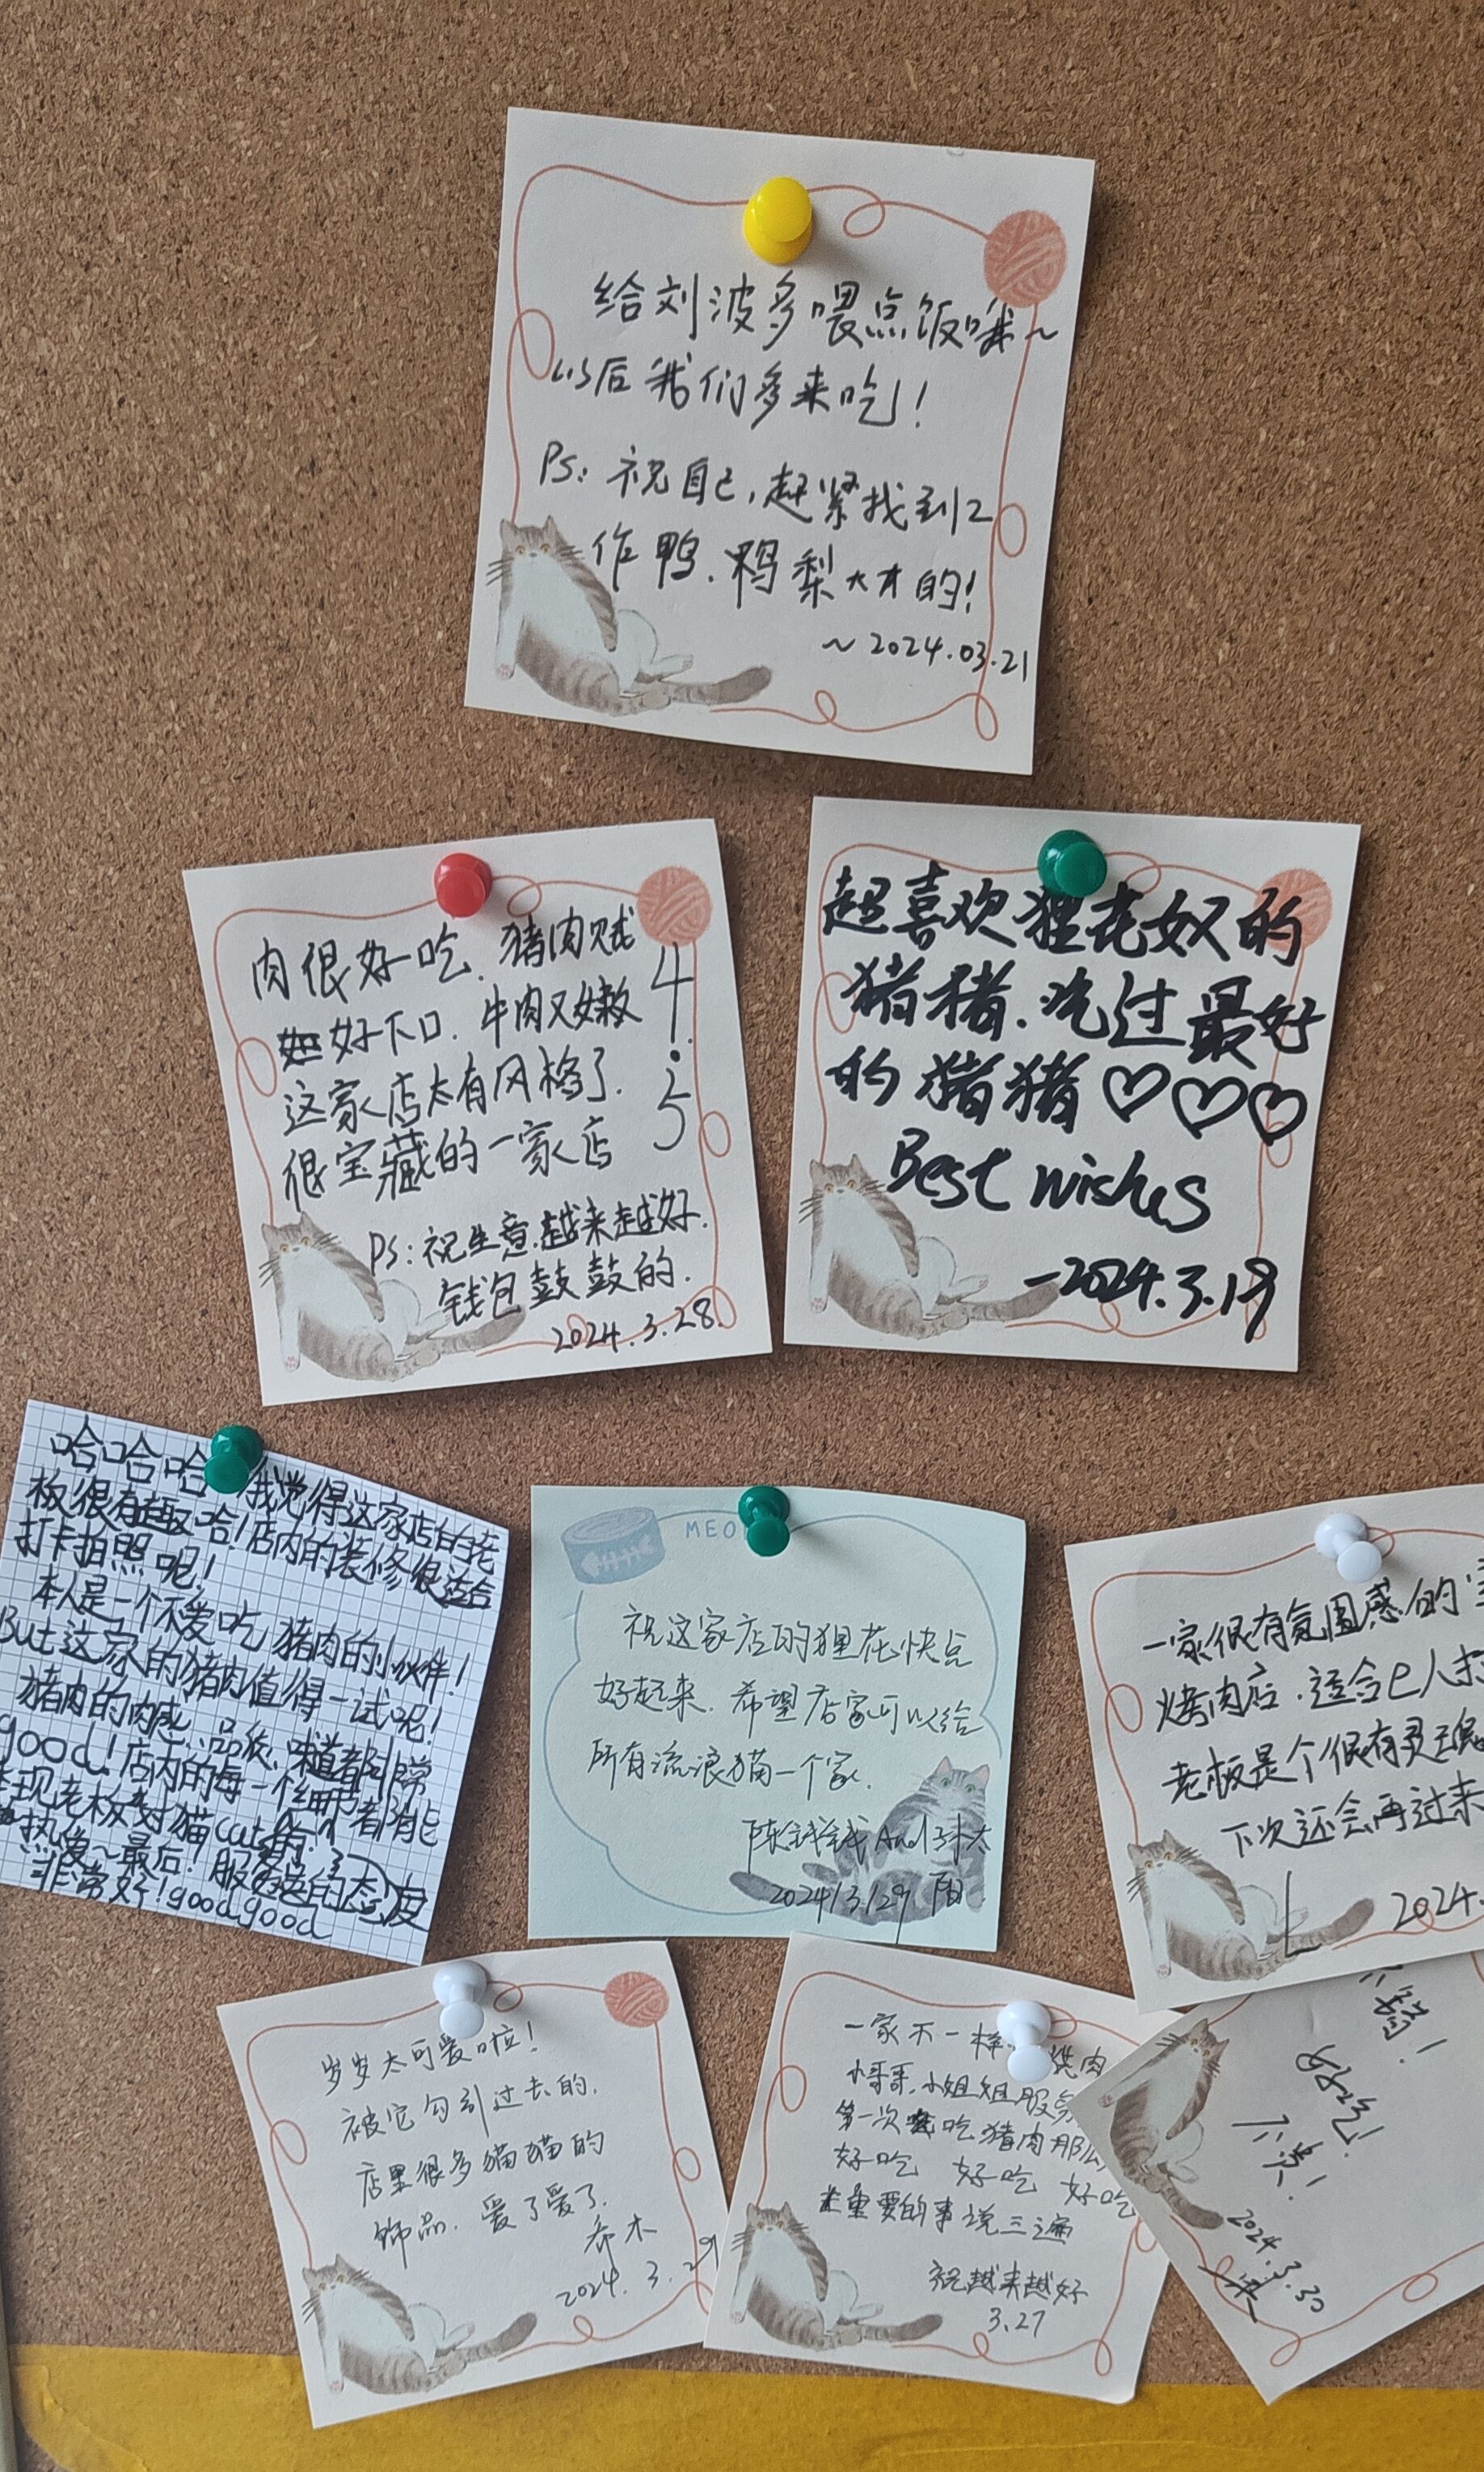 给刘波多喂点饭哦~
以后我们多来吃!
Ps: 祝自己,赶紧找到工
作鸭.鸭梨大大的!
~2024.03.21
肉很好吃.猪肉贼
好下口.牛肉又嫩
这家店太有风格了.
很宝藏的一家店
4.5
Ps:祝生意越来越好.
钱包鼓鼓的.
2024.3.28.
超喜欢狸花奴的
猪猪.吃过最好
的猪猪♡♡♡
Best wishes
-2024.3.19
哈哈哈 我觉得这家店的老
板很有趣哈!店内的装修很适合
打卡拍照呢!
本人是一个不爱吃猪肉的小伙伴!
But这家的猪肉值得一试呢!
猪肉的肉感、品质、味道都非常
good!店内的每一个细节都能
现老板对猫cat的
热爱~最后!服务员的态度
非常好!good good
MEO
祝这家店的狸花快点
好起来.希望店家可以给
所有流浪猫一个家.
陈钱钱And孙太
2024/3/29 阳.
一家很有氛围感的
烤肉店.适合e人
老板是个很有灵魂
下次还会再过来
2024.
岁岁太可爱啦!
被它勾引过去的.
店里很多猫猫的
饰品.爱了爱了.
乔木
2024.3.29
一家不一样 烤肉
小哥哥.小姐姐服务
第一次吃猪肉那么
好吃 好吃 好吃
重要的事说三遍
祝越来越好
3.27
不错!
好吃!
不贵!
2024.3.30